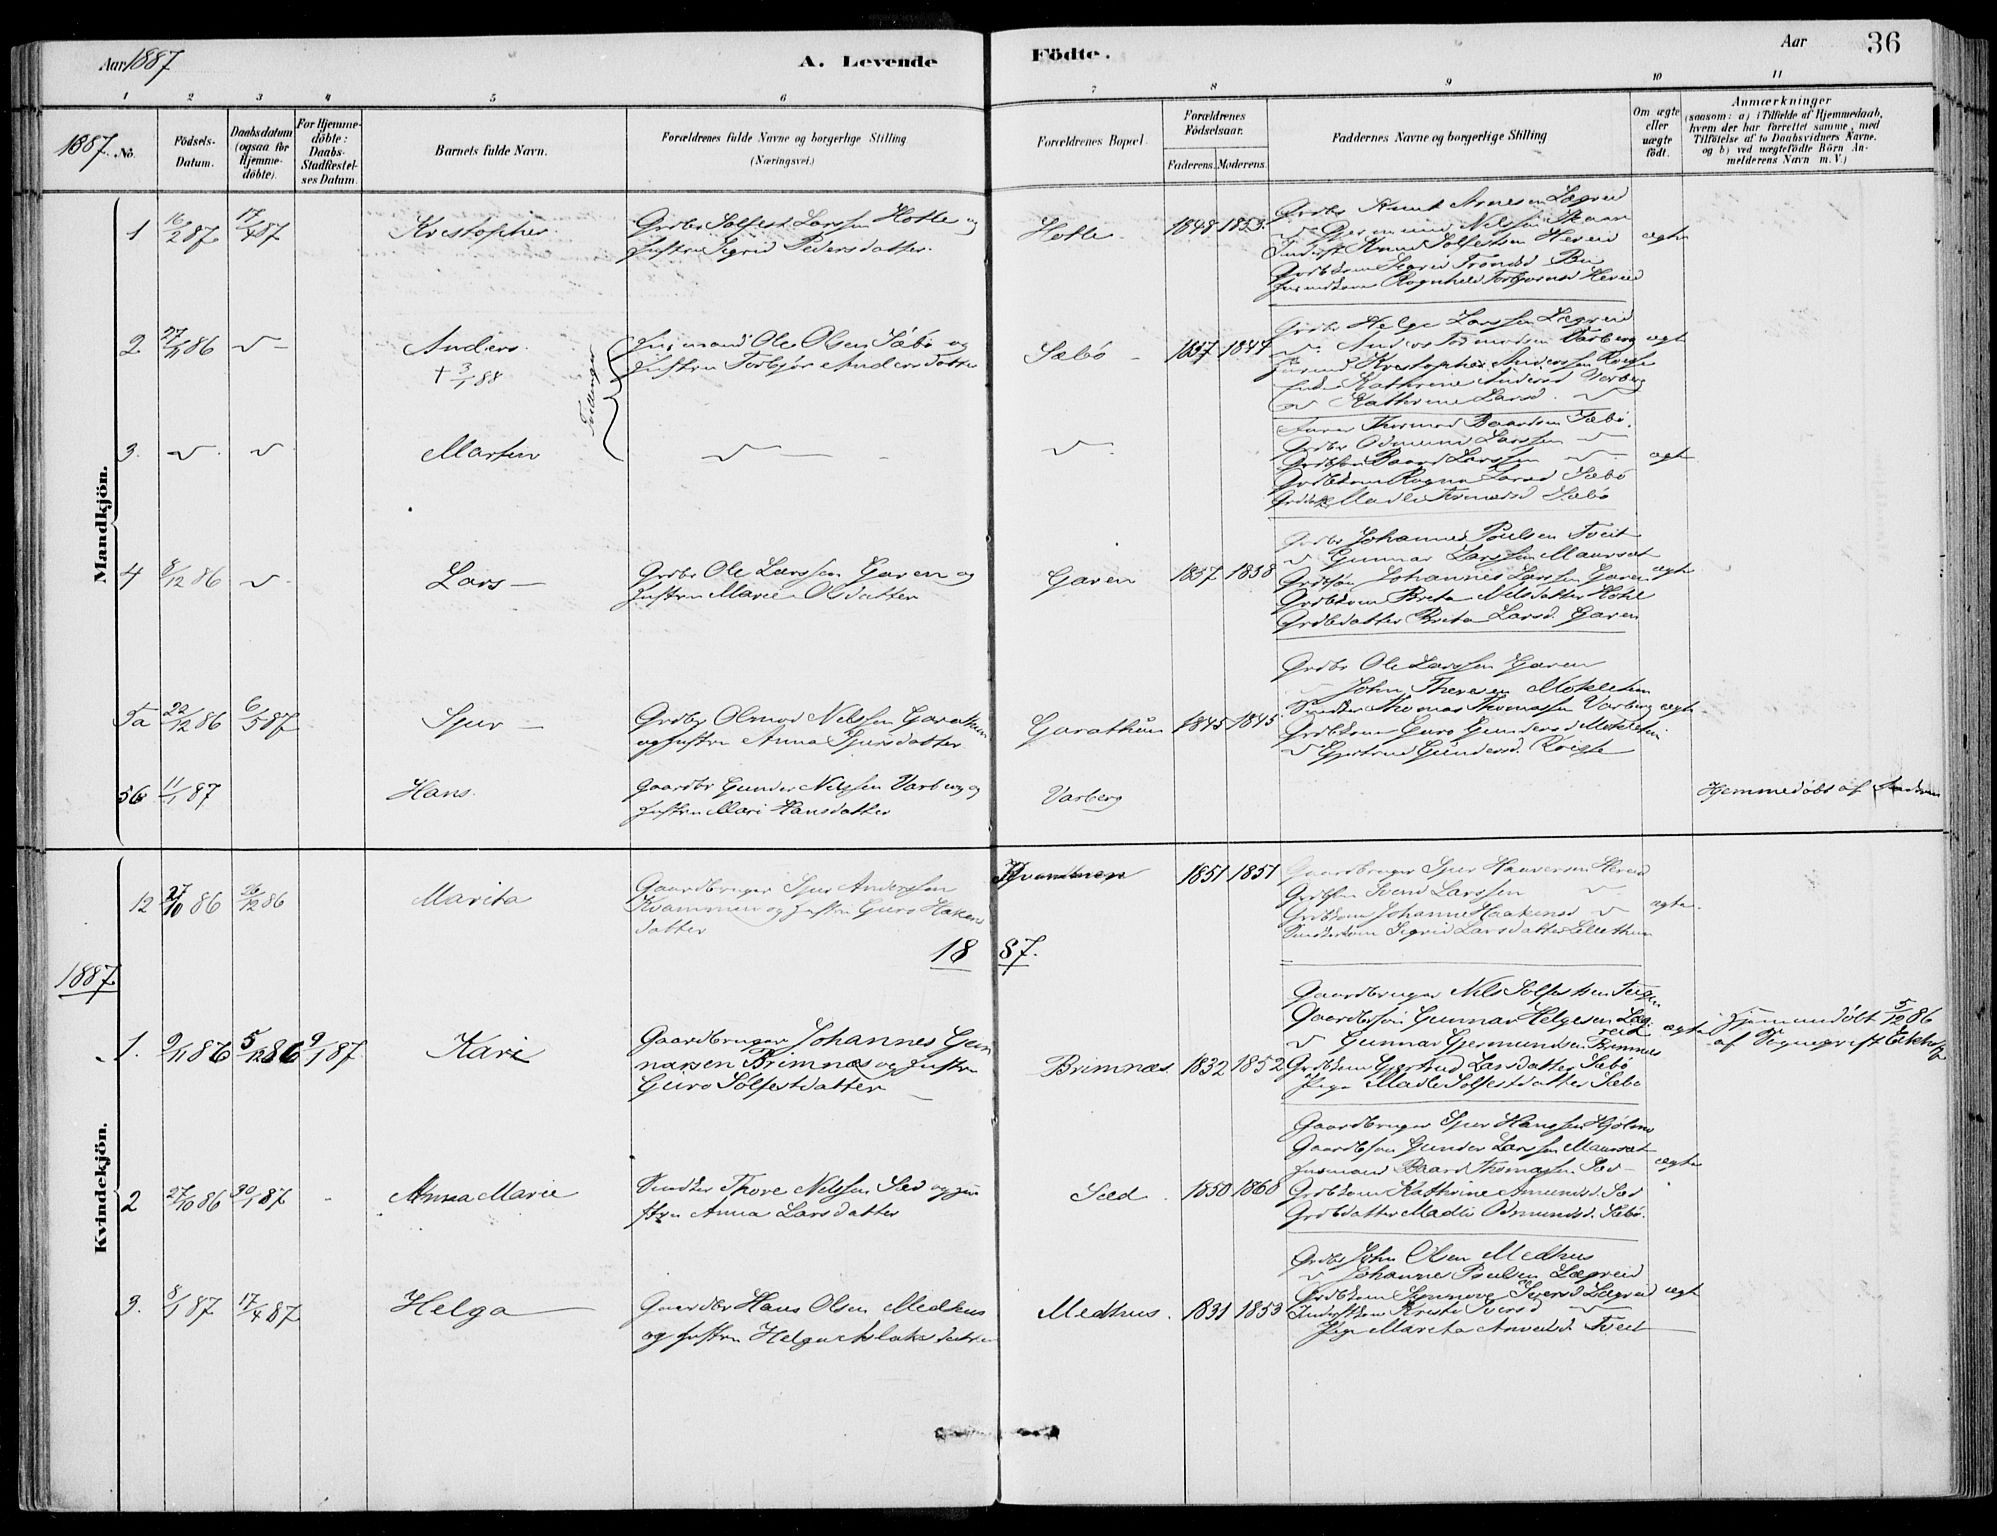 Aar 1887
A. Levende
Födte.
Aar
36
1 2 3 4 5 6 7 8 9 10 11
1887. No.
Födsels-
Datum.
Daabsdatum
(ogsaa for
Hjemme-
döbte).
For Hjemme-
döbte:
Daabs-
Stadfæstel-
ses Datum.
Barnets fulde Navn.
Forældrenes fulde Navne og borgerlige Stilling
(Næringsvei.)
Forældrenes Bopæl.
Forældrenes
Födselsaar.
Faderens. Moderens.
Faddernes Navne og borgerlige Stilling
Om ægte
eller
uægte
födt.
Anmærkninger
(saasom: a) i Tilfælde af Hjemmedaab,
hvem der har forrettet samme, med
Tilföielse af to Daabsvidners Navne.
og b) ved uægtefödte Börn An-
melderens Navn m. V.)
Mandkjön.
1 16/2 87 17/4 87 Kristopher
Grdbr Solfest Larssen Hotle og
Hustru Sigrid Pedersdatter.
Hotle 1848 1853.
Grdbr Knut Arnesen Lægreid
Gjermund Nilsen Skaar
Knud Solfestsen Hereid
Grdbkone Sigrid Trondsd Bu
Rognhild Torbjørnsd Hereid
ægte
2 27/11 86 Anders
+ 3/1 88
Tvillinger
Husmand Ole Olsen Sæbö og
Hustru Torbjør Andersdatter
Sæbö 1837 1844
Grdbr Helge Larssen Lægreid
Anders Varberg
Kristopher Anderssen
Kathrine Andersd Varberg
Kathrine Larsd.
ægt
3. Martin
Thormod Baardsen Sæbö.
Grdbr Odmund Larssen
Baard Larssen
Grdbkone Ragna Larsd Sæbö
Madli Tormodsd Sæbö
ægt
4 8/12 86 Lars
Grdbr Ole Larssen Garen og
Hustru Marie Olsdatter
Garen 1837 1838
Grdbr Johannes Poulsen Tveit
Gunnar Larssen Maursæt
Grdbsøn Johannes Larssen Garen
Grdbkone Brita Nilsdatter Hotle
Grdbdatter Brita Larsd. Garen
ægte
5a 22/12 86 6/5 87 Sjur
Grdbr Olmod Nilssen Garathun
og Hustru Anna Sjursdatter
Garathun 1845 1845
Grdbr Ole Larssen Garen
John Mokletun
Thomas Thomassen Varberg
Grdbkone Guro Gundersd Mokletun
Gjertrud Gundersd.
ægte
5b 11/1 87 Hans.
Gaardbr Gunder Nilssen Varberg og
Hustru Mari Hansdatter
Varberg
Hjemmedöbt af
Kvindekjön.
12 27/10 86 26/12 86 Marita
Gaardbruger Sjur Anderssen
Kvammen og Hustru Guro Hakens
datter
Kvammen 1851 1851
Gaardbruger Sjur Haaversen Hereid
Svend Larssen
Grdbkone Johanne Haakensd
Sigrid Larsdatter Lilletun
ægte
1887
1887.
1. 9/11 86 5/12 86 9/1 87 Kari
Gaardbruger Johannes Gun
narsen Brimnæs og Hustru
Guro Solfestdatter
Brimnæs 1832 1852
Gaardbruger Nils Solfestsen
Gaardbsön Gunnar Helgesen Læg
reid
Gunnar Gjermundsen Brimnæs
Grdbkone Gjertrud Larsdatter Sæbö
Pige Madli Solfestdatter Sæbö
ægte
Hjemmedöbt 5/12 86
af Sogneprest
2 27/10 86 30/1 87 Anna Marie
Snedker Thore Nilssen Sæd og Hu
stru Anna Larsdatter
Sæd. 1850 1860
Gaardbruger Sjur Hanssen Hjölmo
Gaardbsön Gunder Larssen Maursæt
Husmand Baard Thomassen Sæd
Grdbkone Kathrine Amundsd Sæd
Grdbdatter Madli Odmundsd. Sæbö.
ægte
3. 8/1 87 17/4 87 Helga
Gaardbr Hans Olsen Medhus
og Hustru Helga Aslaksdatter
Medhus. 1831 1853
Grdbr John Olsen Medhus
Johannes Poulsen Lægreid
Grdbkone Synneve Iversd Lægreid
Kristi Iversd
Pige Marita Tveit
ægt